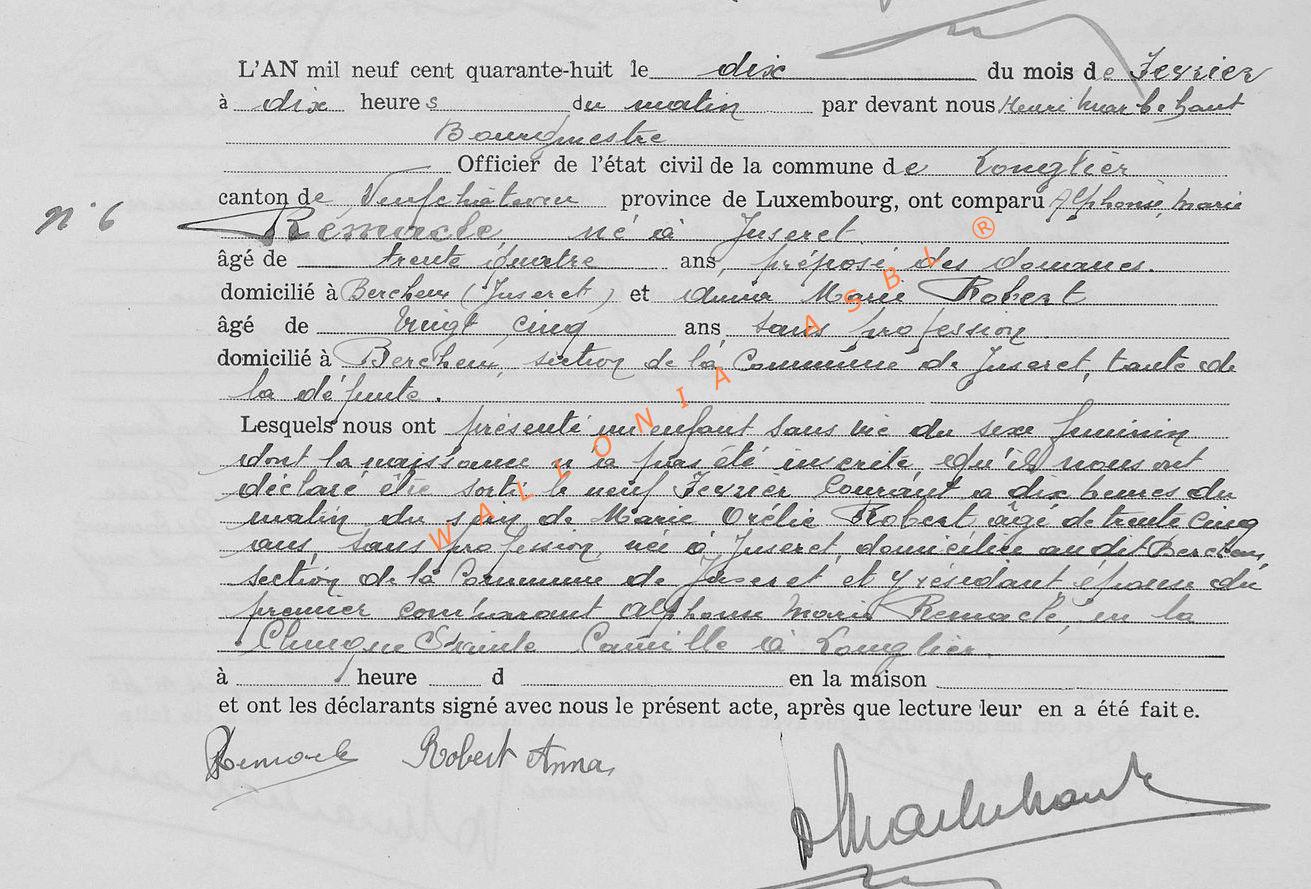 L'AN mil neuf cent quarante-huit le dix du mois de Fevrier
à dix heures du matin par devant nous Henri Marbehant
Bourgmestre
Officier de l'état civil de la commune de Longlier
n° 6
canton de Neufchâteau province de Luxembourg, ont comparu Alphonse, Marie
Remacle né à Juseret.
âgé de trente quatre ans, préposé des douanes.
domicilié à Berchem (Juseret) et Anna Marie Robert
âgé de vingt cinq ans sans profession
domicilié à Berchem, section de la Commune de Juseret, tante de
la défunte.
Lesquels nous ont présenté un enfant sans vie du sexe feminin
dont la naissance n'a pas été inscrite, qu'ils nous ont
déclaré être sorti le neuf Fevrier Courant a dix heures du
matin du sein de Marie Orélie Robert âgé de trente cinq
ans, sans profession, née à Juseret, domiciliée au dit Berchem,
section de la Commune de Juseret et y résidant épouse du
premier comparant Alphonse Marie Remacle, en la
Clinique Sainte Camille à Longlier.
à heure d en la maison
et ont les déclarants signé avec nous le présent acte, après que lecture leur en a été faite.
Remacle Robert Anna
WALLONIA ASBL ®